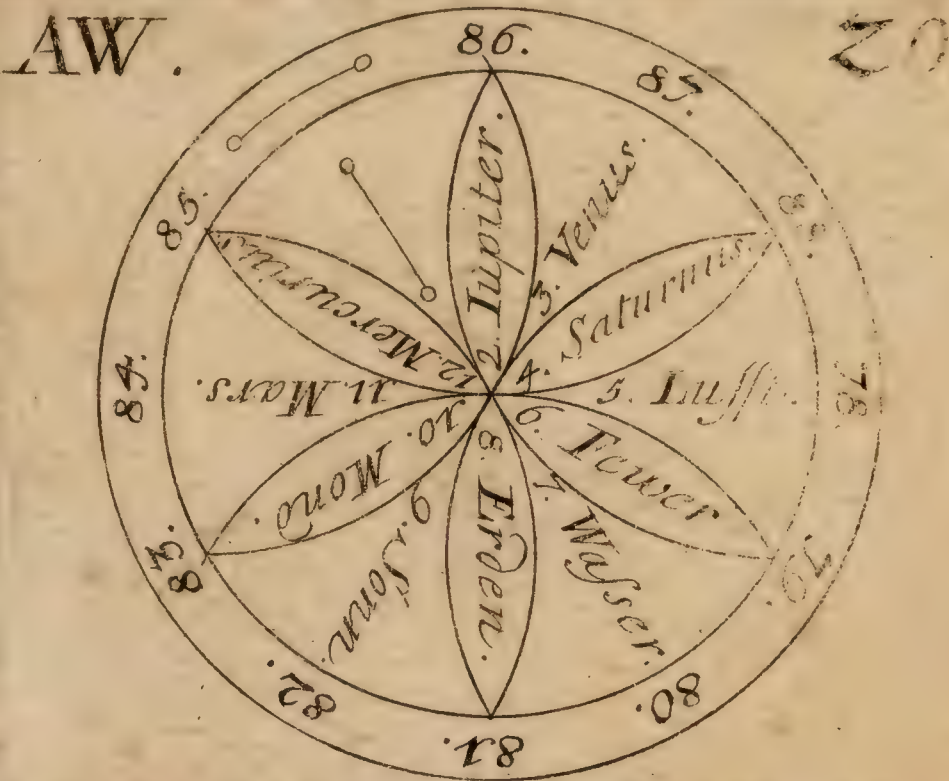 AW.
86.
87.
78.
79.
80.
81.
82.
83.
84.
85.
2. Iupiter.
3. Venus.
4. Saturnus.
5. Lufft.
6. Fewer
7. Wasser.
8. Erden.
9. Sonn.
10. Mond.
11. Mars.
12. Mercurius